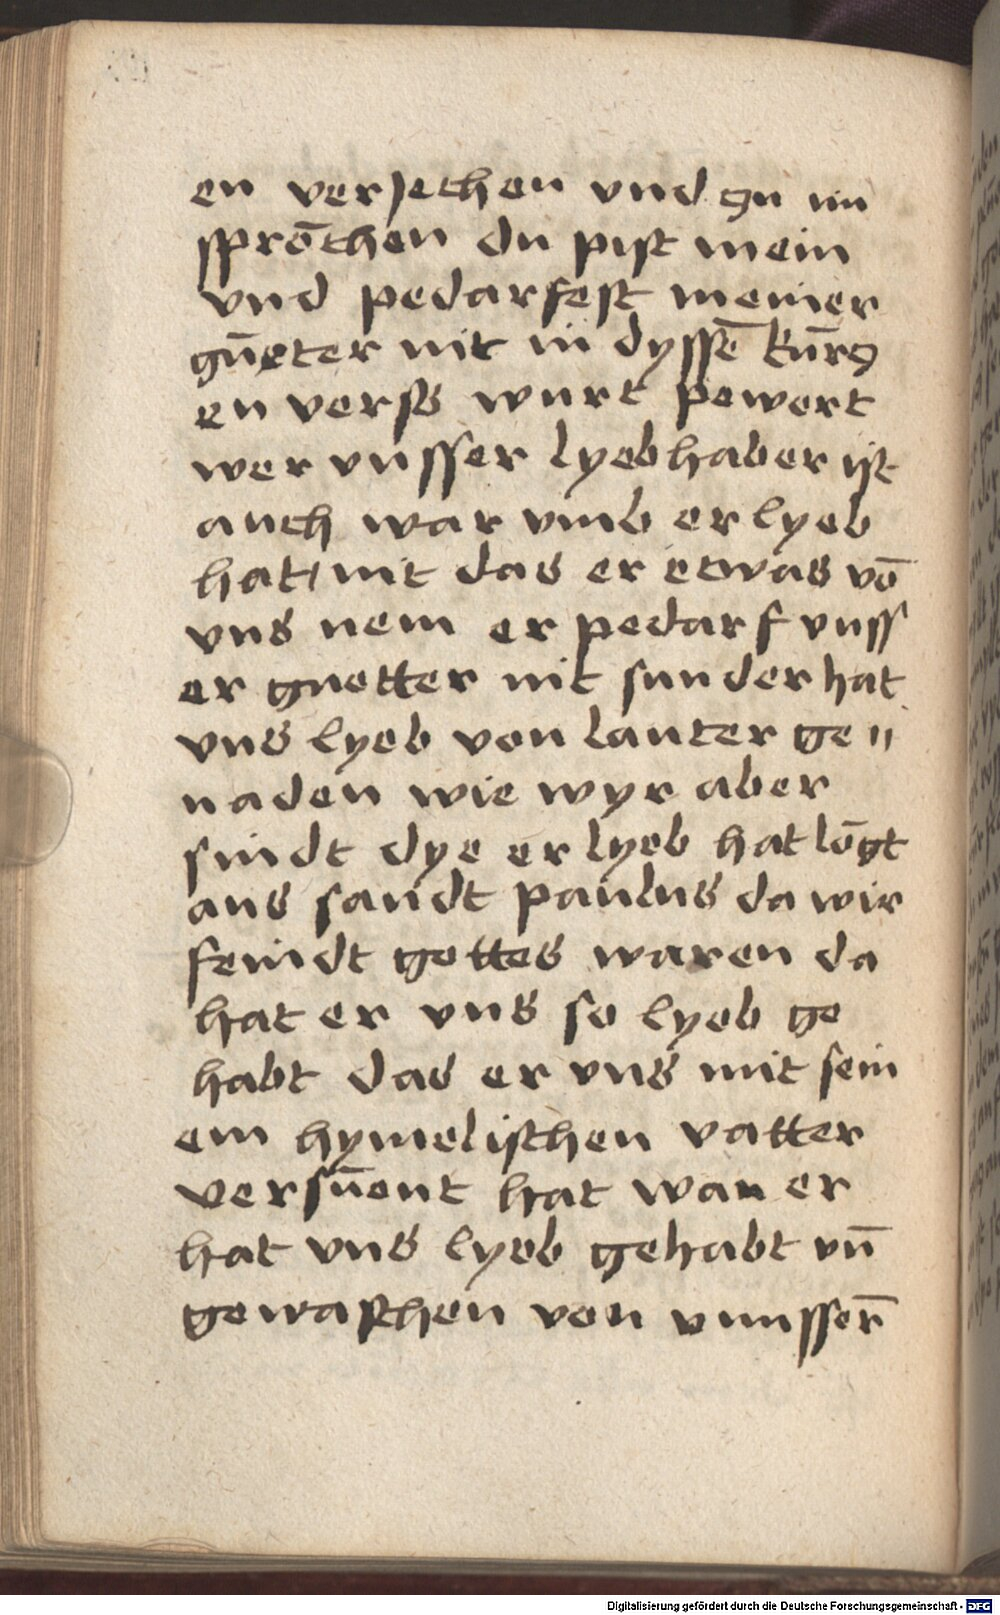 en versechen vnd zu im
sprōchen du pist mein
vnd pedarfest meiner
gūeter nit in dyssē kūrcz
en verss wurt pewert
wer vnsser lyebhaber ist
auch war vmb er lyeb
hat / nit das er etwas vō
vns nem er pedarf vnss
er guetter nit sunder hat
vns lyeb von lauter ge//
naden wie wyr aber
sindt dye er lyeb hat lōgt
aus sandt paulus da wir
feindt gottes waren da
hat er vns so lyeb ge
habt das er vns mit sein
em hymelischen vatter
versūent hat wan er
hat vns lyeb gehabt vn̄
gewaschen von vnnsser̄
Digitalisierung gefördert durch die Deutsche Forschungsgemeinschaft - DFG